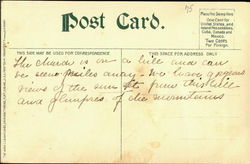 75
Post Card.
Place the Stamp Here
One Cent for
United States
and Island Possessions,
Cuba, Canada and
Mexico.
Two Cents
For Foreign.
THIS SIDE MAY BE USED FOR CORRESPONDENCE
THIS SPACE FOR ADDRESS ONLY
The church is on a hill and can
be seen miles away - We have
views of the sun set from this hill
and glimpses of the mountains